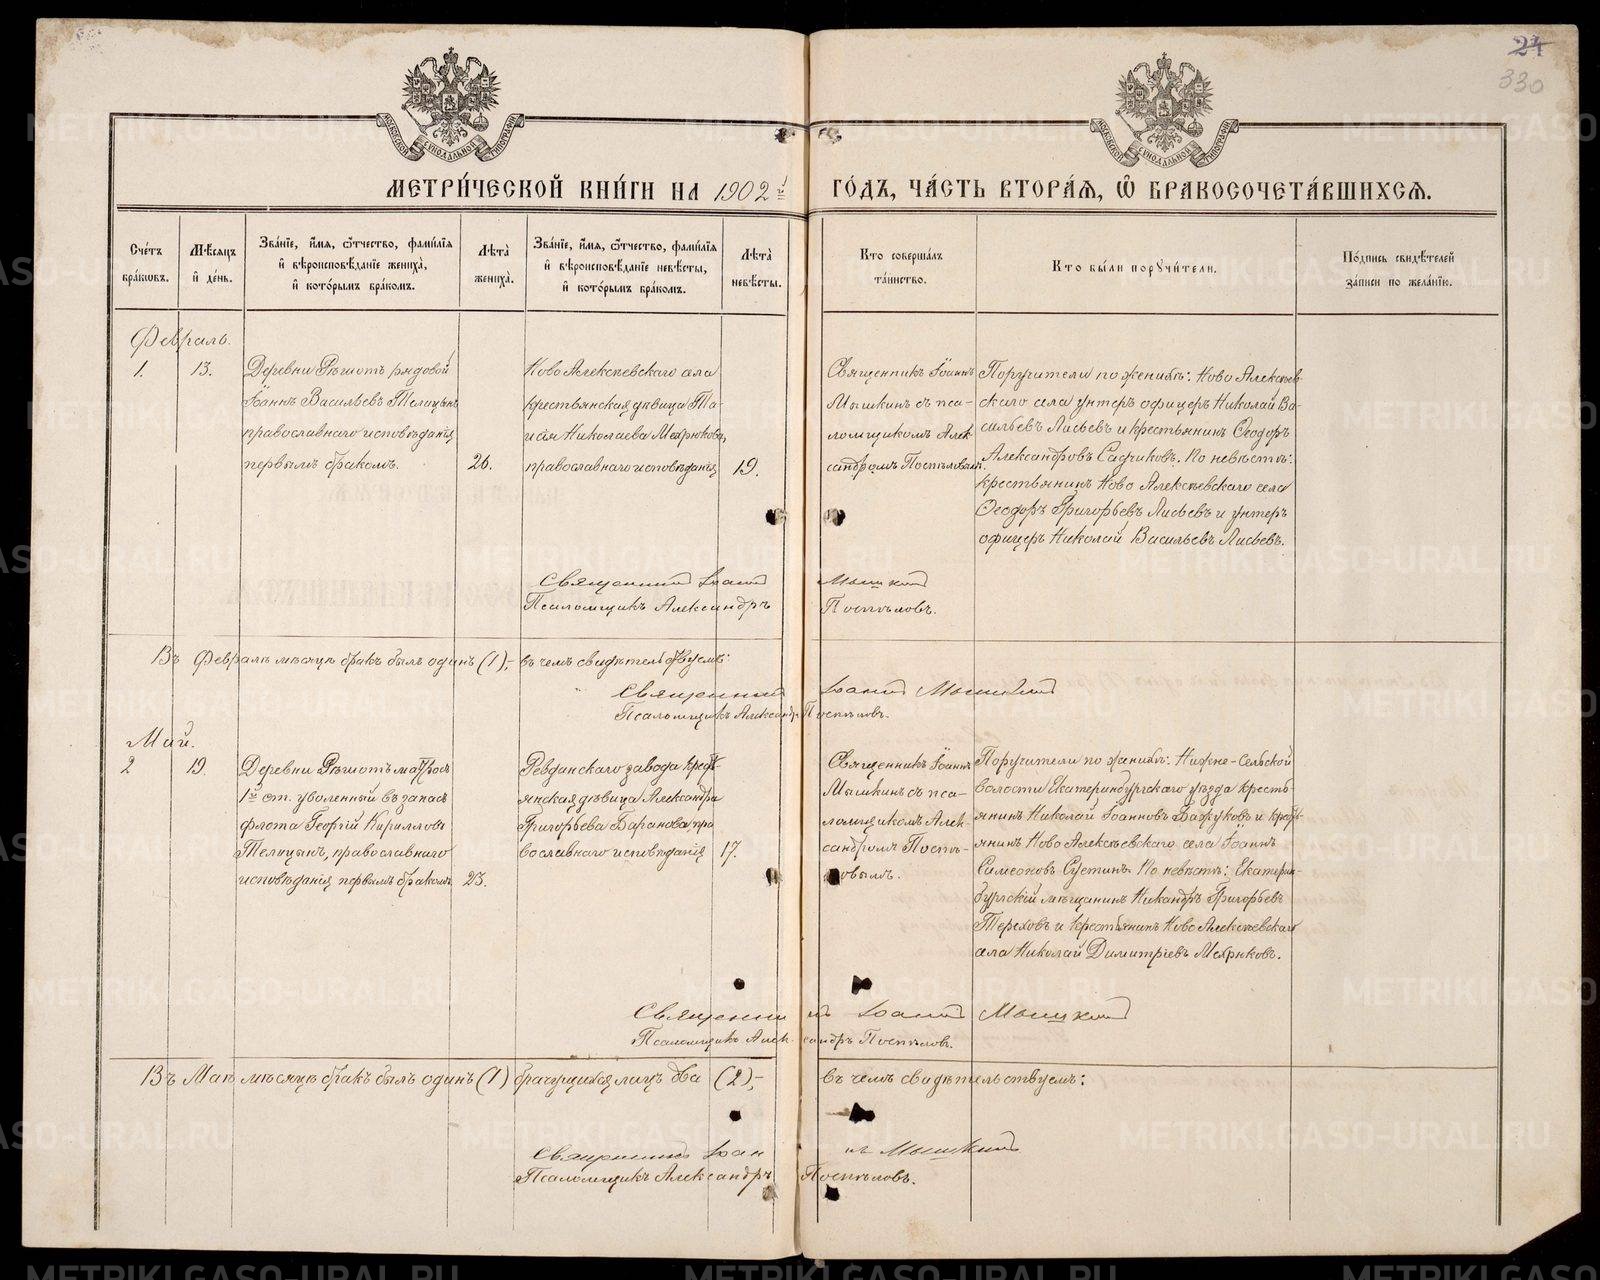 24
330
МОСКОВСКОЙ СѴНОДАЛЬНОЙ ТИПОГРАФІИ
МОСКОВСКОЙ СѴНОДАЛЬНОЙ ТИПОГРАФІИ
МЕТРИ́ЧЕСКОЙ КНИ́ГИ НА 1902й ГО́ДЪ, ЧА́СТЬ ВТОРА́Я, Ѡ҆ БРАКОСОЧЕТА́ВШИХСЯ.
Сче́тъ бра́кѡвъ.
Мѣ́сяцъ и҆ де́нь.
Зва́нїе, и҆́мя, ѻ҆́тчество, фамі́лїя и҆ вѣроисповѣ́данїе жениха̀, и҆ кото́рымъ бра́комъ.
Лѣ́та жениха̀.
Зва́нїе, и҆́мя, ѻ҆́тчество, фамі́лїя и҆ вѣроисповѣ́данїе невѣ́сты, и҆ кото́рымъ бра́комъ.
Лѣ́та невѣ́сты.
Кто̀ соверша́лъ та́инство.
Кто̀ бы́ли порꙋчи́тели.
По́дпись свидѣ́телей за́писи по жела́нїю.
Февраль.
1.
13.
Деревни Рѣшотъ рядовой
Іоаннъ Васильевъ Телицынъ
православнаго исповѣданія
первымъ бракомъ.
26.
Ново Алексѣевскаго села
крестьянская дѣвица Та-
исія Николаева Мехрюкова,
православнаго исповѣданія
19.
Священникъ Іоаннъ
Мышкинъ съ пса-
ломщикомъ Алек-
сандромъ Поспѣловымъ.
Поручители по женихѣ: Ново Алексѣев-
скаго села унтеръ офицеръ Николай Ва-
сильевъ Лисьевъ и крестьянинъ Ѳеодоръ
Александровъ Садчиковъ. По невѣстѣ:
крестьянинъ Ново Алексѣевскаго села
Ѳеодоръ Григорьевъ Лисьевъ и унтеръ
офицеръ Николай Васильевъ Лисьевъ.
Священникъ Іоаннъ Мышкинъ
Псаломщикъ Александръ Поспѣловъ.
Въ Февралѣ мѣсяцѣ бракъ былъ одинъ (1),- въ чемъ свидѣтельствуемъ:
Священникъ Іоаннъ Мышкинъ
Псаломщикъ Александръ Поспѣловъ.
Май.
2
19.
Деревни Рѣшотъ матросъ
1й ст. уволенный въ запасъ
флота Георгій Кирилловъ
Телицынъ, православнаго
исповѣданія, первымъ бракомъ.
23.
Ревдинскаго завода кресть-
янская дѣвица Александра
Григорьева Баранова, пра
вославнаго исповѣданія
17.
Священникъ Іоаннъ
Мышкинъ съ пса-
ломщикомъ Алек-
сандромъ Поспѣ-
ловымъ.
Поручители по женихѣ: Нижне-Сельской
волости Екатеринбургскаго уѣзда кресть-
янинъ Николай Іоанновъ Бажуковъ и кресть-
янинъ Ново Алексѣевскаго села Іоаннъ
Симеоновъ Сустинъ. По невѣстѣ: Екатерин-
бургскій мѣщанинъ Никандръ Григорьевъ
Тереховъ и крестьянинъ Ново Алексѣевскаго
села Николай Димитріевъ Мехрюковъ.
Священникъ Іоаннъ Мышкинъ
Псаломщикъ Александръ Поспѣловъ.
Въ Маѣ мѣсяцѣ бракъ былъ одинъ (1) брачущихся лицъ два (2),- въ чемъ свидѣтельствуемъ:
Священникъ Іоаннъ Мышкинъ
Псаломщикъ Александръ Поспѣловъ.